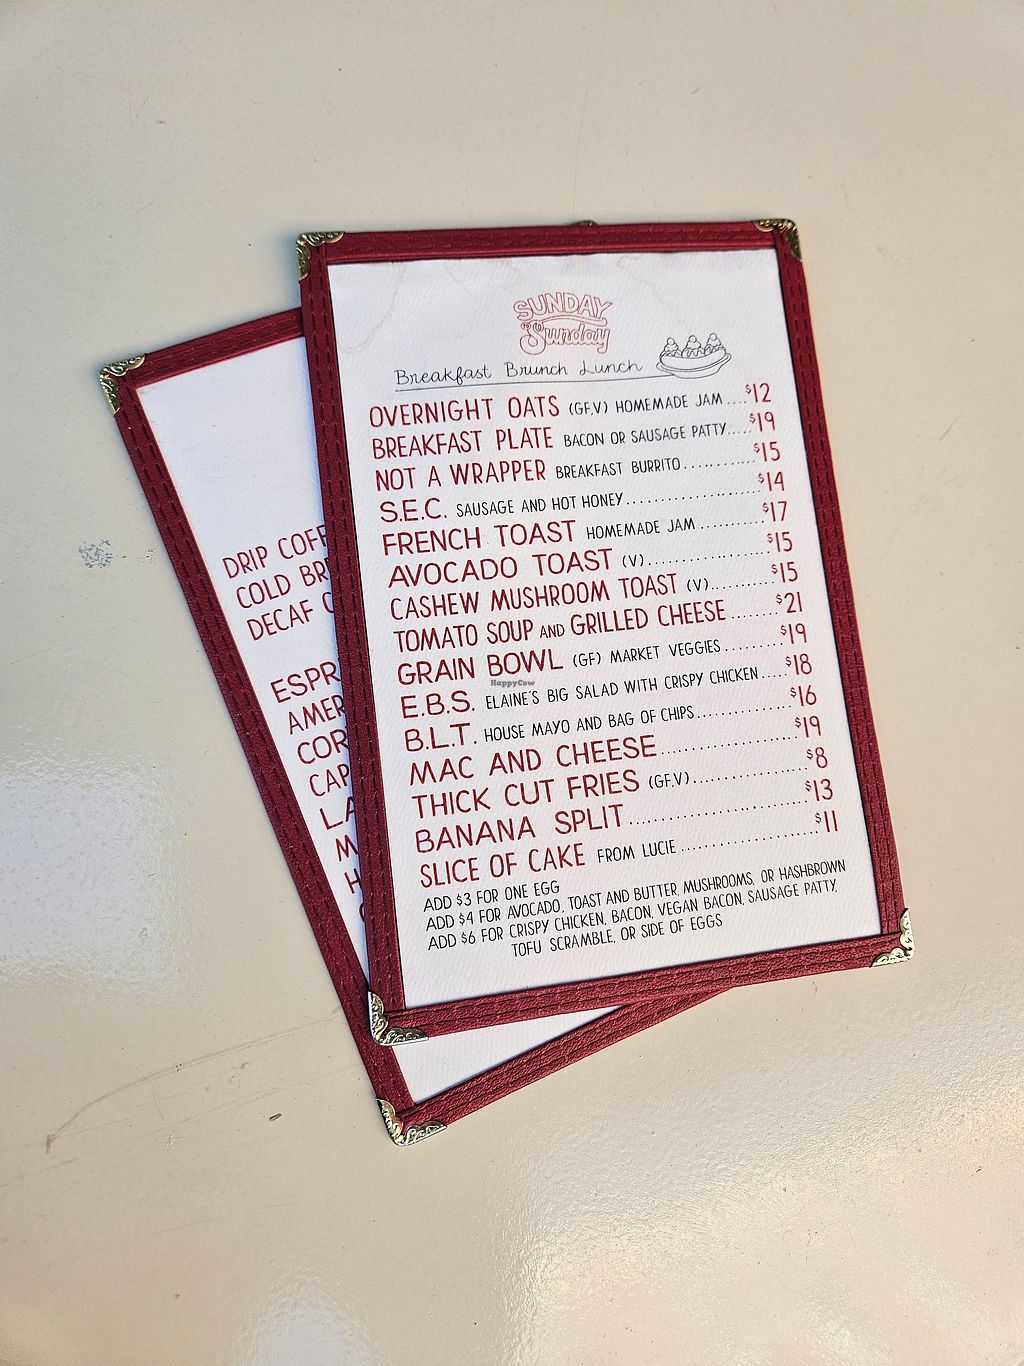 SUNDAY
"Sunday
Breakfast Brunch Lunch
OVERNIGHT OATS (GF,V) HOMEMADE JAM ....$12
BREAKFAST PLATE BACON OR SAUSAGE PATTY.....$19
NOT A WRAPPER BREAKFAST BURRITO............$15
S.E.C. SAUSAGE AND HOT HONEY....................$14
FRENCH TOAST HOMEMADE JAM ..........$17
AVOCADO TOAST (V)....................$15
CASHEW MUSHROOM TOAST (V)...........$15
TOMATO SOUP AND GRILLED CHEESE........$21
GRAIN BOWL (GF) MARKET VEGGIES ..........$19
E.B.S. ELAINE'S BIG SALAD WITH CRISPY CHICKEN.....$18
B.L.T. HOUSE MAYO AND BAG OF CHIPS.............$16
MAC AND CHEESE....................$19
THICK CUT FRIES (GF,V)................$8
BANANA SPLIT.........................$13
SLICE OF CAKE FROM LUCIE ....................$11
ADD $3 FOR ONE EGG
ADD $4 FOR AVOCADO, TOAST AND BUTTER, MUSHROOMS, OR HASHBROWN
ADD $6 FOR CRISPY CHICKEN, BACON, VEGAN BACON, SAUSAGE PATTY,
TOFU SCRAMBLE, OR SIDE OF EGGS
HappyCow
DRIP COFF
COLD BR
DECAF C
ESPR
AMER
COR
CAP
LA
M
H